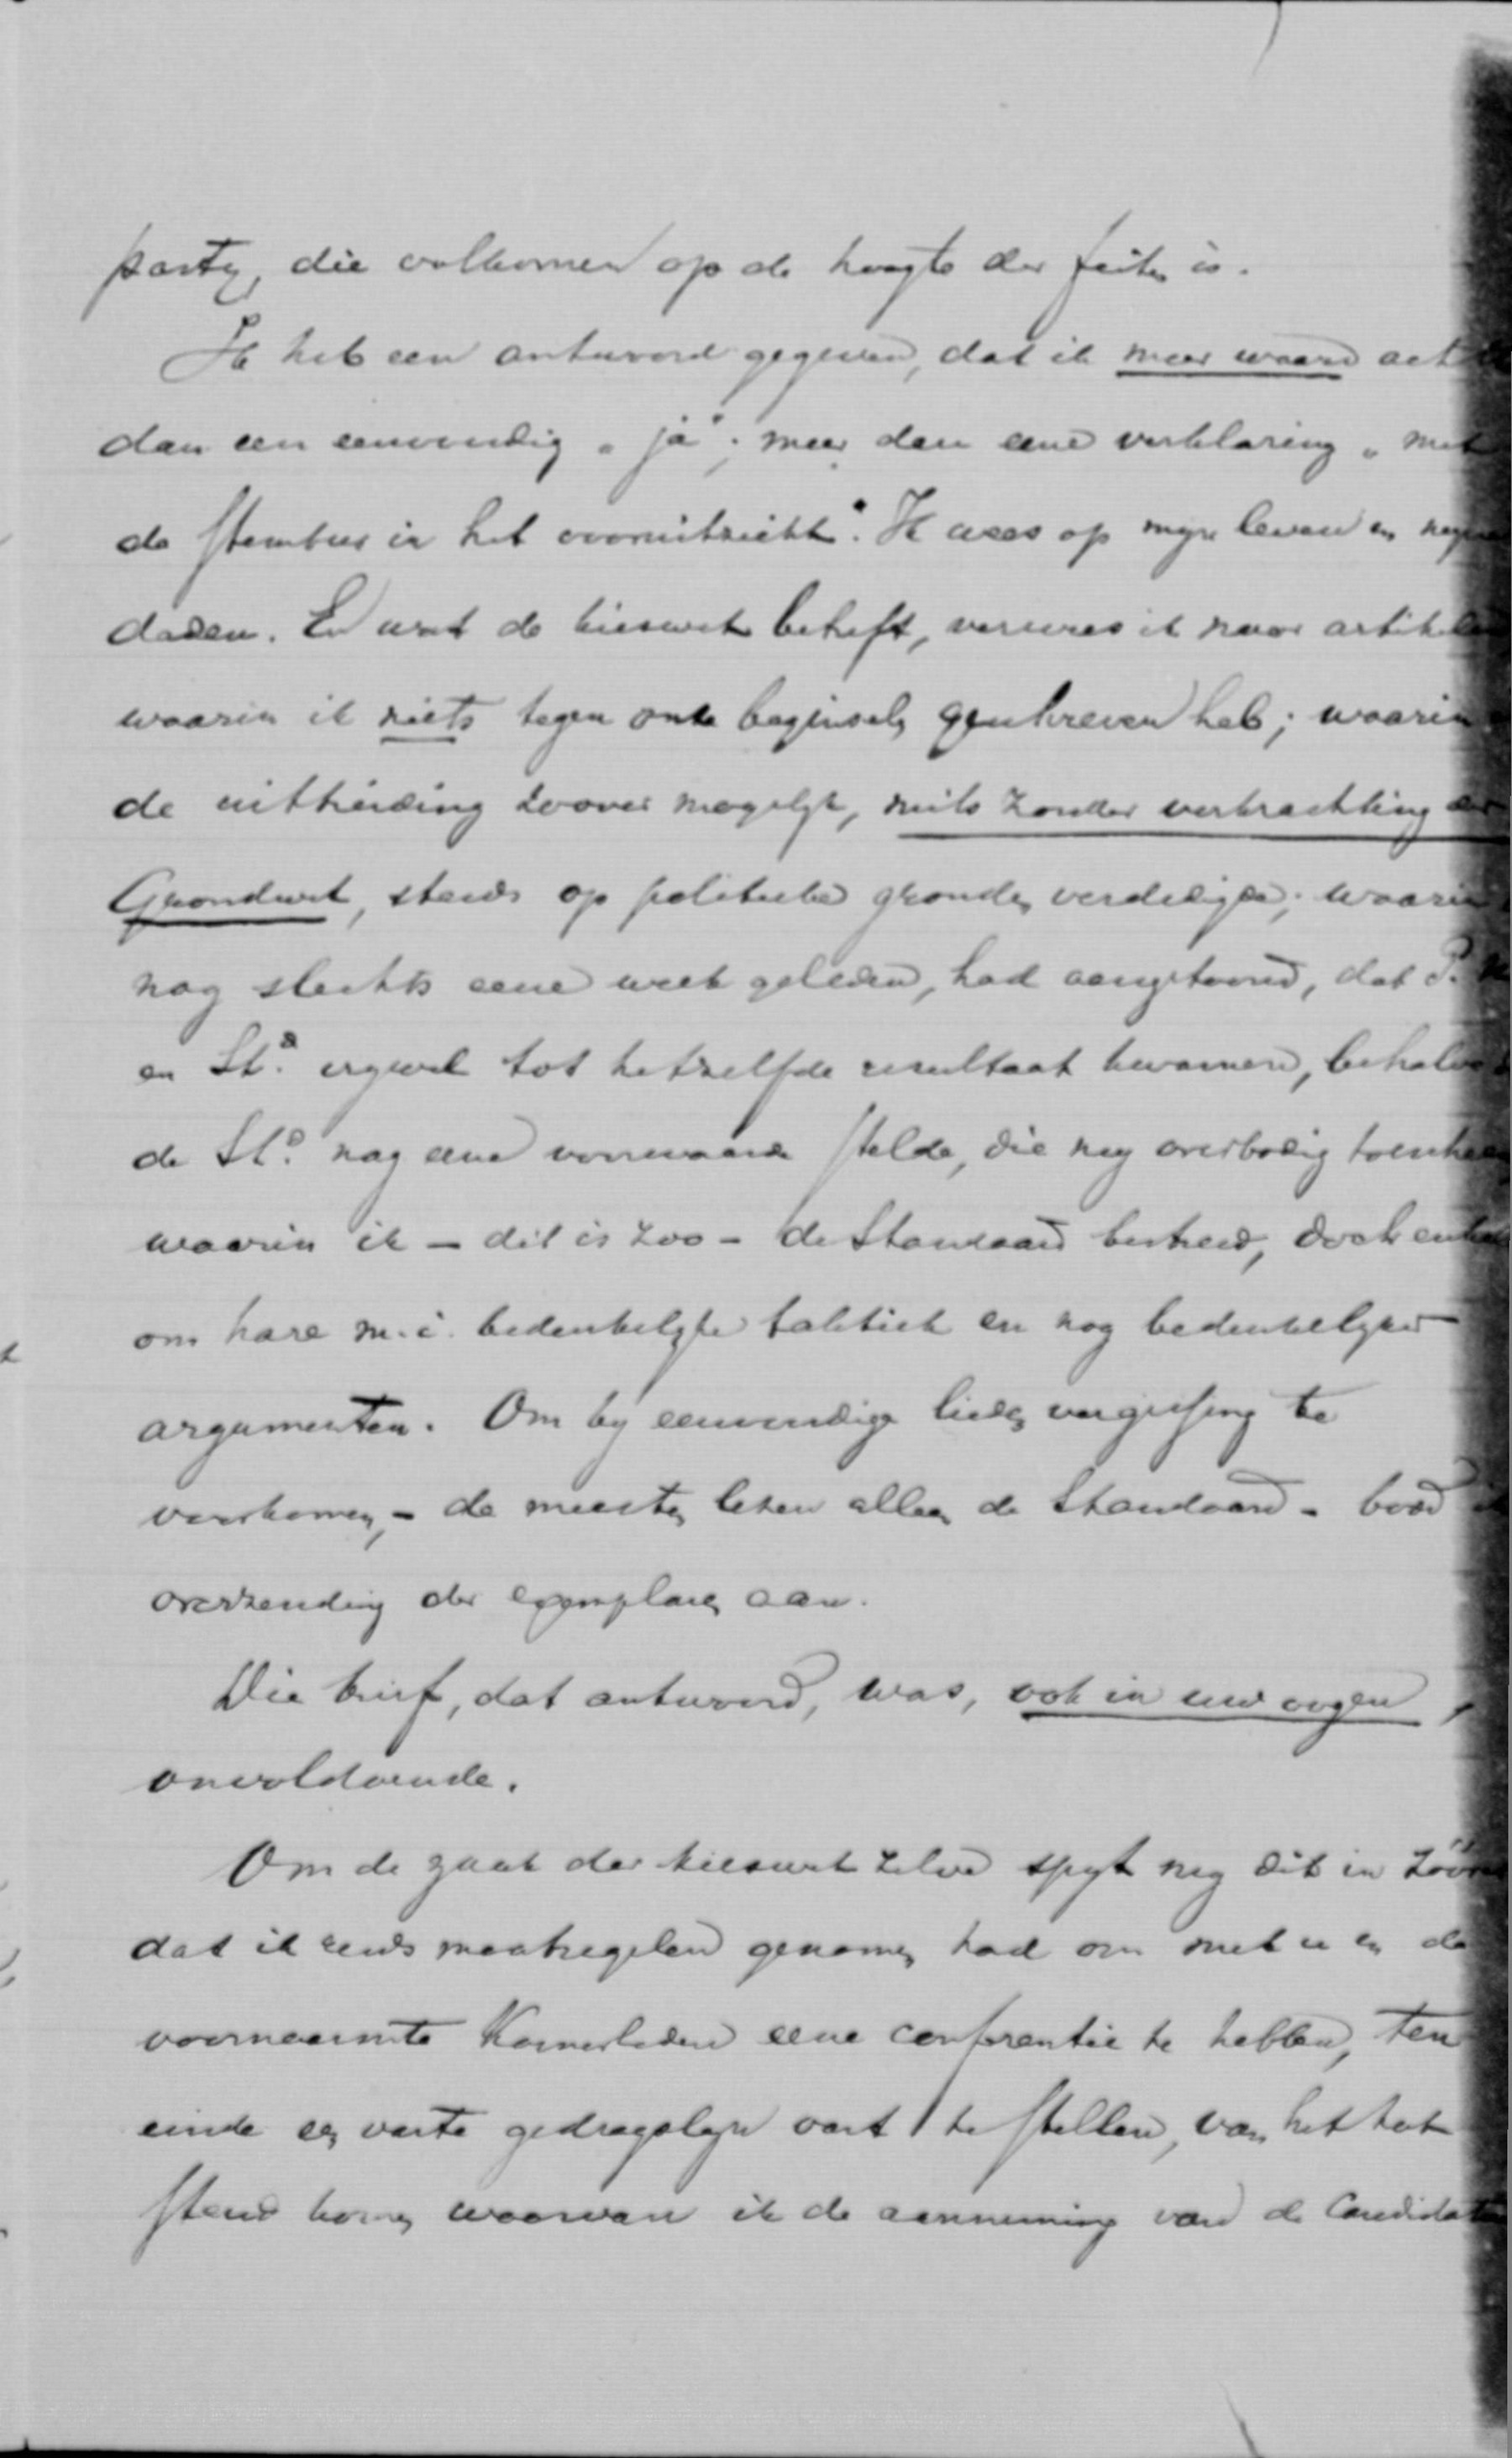 party, die volkomen op de hoogte der feiten is.
Ik heb een antwoord gegeven, dat ik meer waard acht
dan een eenvoudig „ja"; meer dan eene verklaring „met
de stembus in het vooruitzicht". Ik wees op mijn leven en mijne
daden. En wat de kieswet betreft, verwees ik naar artikelen
waarin ik niets tegen onze beginselen geschreven heb; waarin
de uitbreiding zoover mogelijk, mits zonder verkrachting der
Grondwet, steeds op politieke gronden verdedigde; waarin
nog slechts eene week geleden, had aangetoond, dat P.
en St.d. ongeveer tot hetzelfde resultaat kwamen, behalve
de St.d. nog eene voorwaarde stelde, die mij overbodig toescheen
waarin ik – dit is zoo – de Standaard bestreed, doch enkel
om hare m.i. bedenkelijke taktiek en nog bedenkelijker
argumenten. Om bij eenvoudige lieden vergissing te
voorkomen, – de meesten lezen alleen de Standaard – bood ik
overzending der exemplaren aan.
Die brief, dat antwoord, was, ook in uw oogen,
onvoldoende.
Om de zaak der kieswet zelve spijt mij dit in zóóver
dat ik reeds maatregelen genomen had om met u en de
voornaamste Kamerleden eene conferentie te hebben, ten
einde een vaste gedragslijn vast te stellen, van het tot
stand komen waarvan ik de aanneming van de Candidatuur